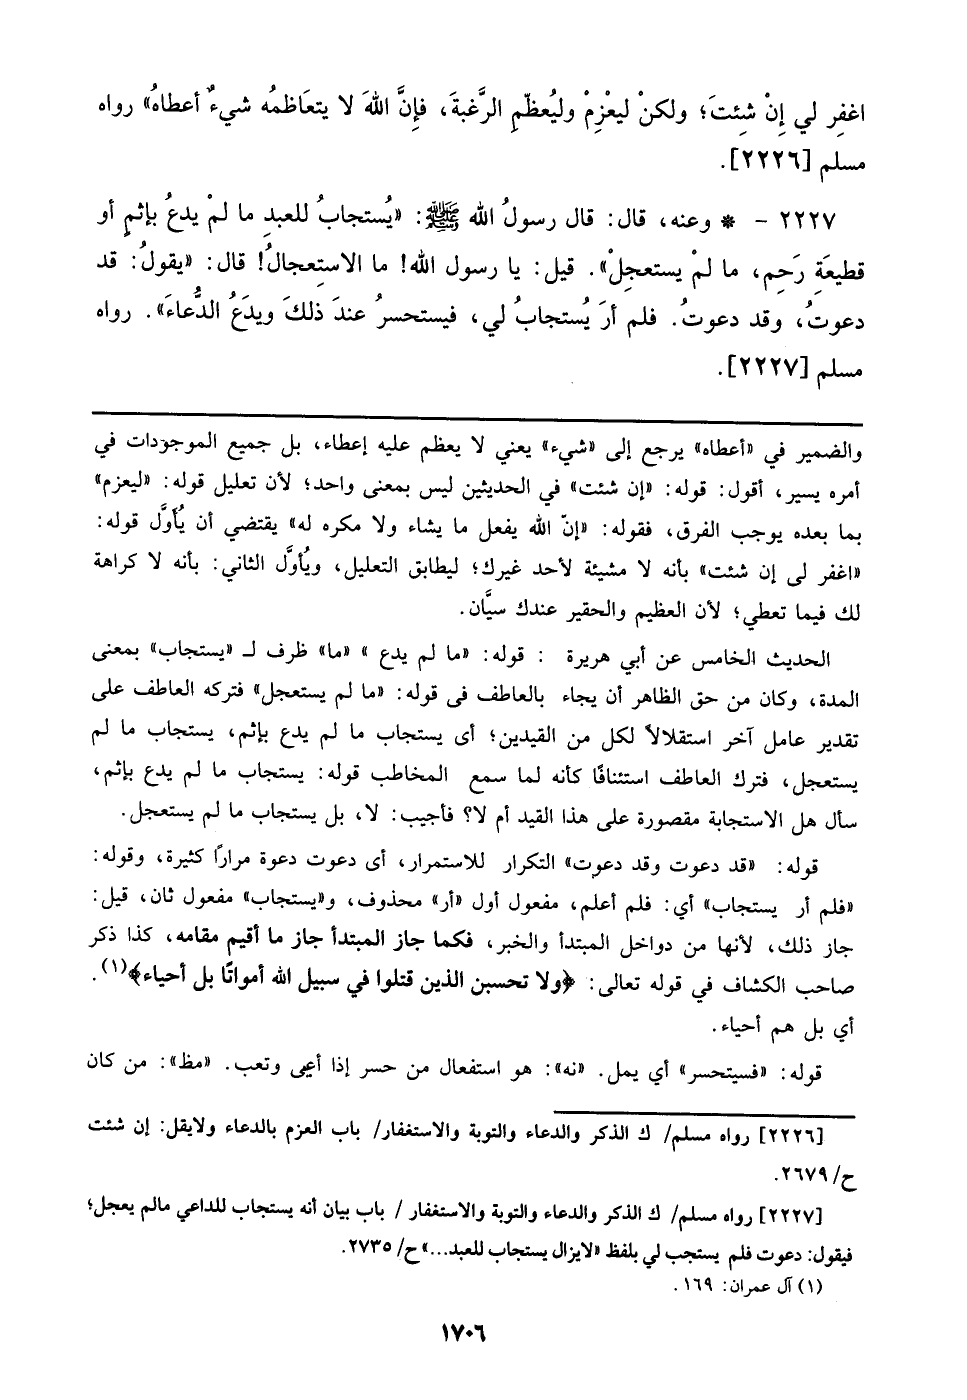 اغفِر لي إِنْ شِئتَ؛ ولكنْ ليعْزِمْ وليُعظّمِ الرَّغبةَ، فإِنَّ اللهَ لا يتعَاظمُه شيءٌ أعطاهُ» رواه
مسلم [٢٢٢٦].
٢٢٢٧ - * وعنه، قال: قال رسولُ الله ﷺ: «يُستجابُ للعبدِ ما لمْ يدعُ بإثمٍ أو
قطيعَةِ رَحِم، ما لمْ يستعجِلْ». قيل: يا رسول الله! ما الاستِعجالُ! قال: «يقولُ: قد
دعوتُ، وقد دعوتُ. فلم أرَ يُستجابُ لي، فيستحسرُ عندَ ذلكَ ويدَعُ الدُّعاءَ». رواه
مسلم [٢٢٢٧].
والضمير في «أعطاه» يرجع إلى «شيء» يعني لا يعظم عليه إعطاء، بل جميع الموجودات في
أمره يسير، أقول: قوله: «إن شئت» في الحديثين ليس بمعنى واحد؛ لأن تعليل قوله: «ليعزم»
بما بعده يوجب الفرق، فقوله: «إنّ الله يفعل ما يشاء ولا مكره له» يقتضي أن يُأوَّل قوله:
«اغفر لى إن شئت» بأنه لا مشيئة لأحد غيرك؛ ليطابق التعليل، ويُأوَّل الثاني: بأنه لا كراهة
لك فيما تعطي؛ لأن العظيم والحقير عندك سيَّان.
الحديث الخامس عن أبي هريرة : قوله: «ما لم يدع » «ما» ظرف لـ «يستجاب» بمعنى
المدة، وكان من حق الظاهر أن يجاء بالعاطف فى قوله: «ما لم يستعجل» فتركه العاطف على
تقدير عامل آخر استقلالاً لكل من القيدين؛ أى يستجاب ما لم يدع بإثم، يستجاب ما لم
يستعجل، فترك العاطف استئنافًا كأنه لما سمع المخاطب قوله: يستجاب ما لم يدع بإثم،
سأل هل الاستجابة مقصورة على هذا القيد أم لا؟ فأجيب: لا، بل يستجاب ما لم يستعجل.
قوله: «قد دعوت وقد دعوت» التكرار للاستمرار، أى دعوت دعوة مرارًا كثيرة، وقوله:
«فلم أر يستجاب» أي: فلم أعلم، مفعول أول «أر» محذوف، و«يستجاب» مفعول ثان، قيل:
جاز ذلك، لأنها من دواخل المبتدأ والخبر، فكما جاز المبتدأ جاز ما أقيم مقامه، كذا ذكر
صاحب الكشاف في قوله تعالى: ﴿ولا تحسبن الذين قتلوا في سبيل الله أمواتًا بل أحياء﴾(١).
أي بل هم أحياء.
قوله: «فسيتحسر» أي يمل. «نه»: هو استفعال من حسر إذا أعِى وتعب. «مظ»: من كان
[٢٢٢٦] رواه مسلم/ ك الذكر والدعاء والتوبة والاستغفار/ باب العزم بالدعاء ولايقل: إن شئت
ح/ ٢٦٧٩.
[٢٢٢٧] رواه مسلم/ ك الذكر والدعاء والتوبة والاستغفار / باب بيان أنه يستجاب للداعي مالم يعجل؛
فيقول: دعوت فلم يستجب لي بلفظ «لايزال يستجاب للعبد...» ح/ ٢٧٣٥.
(١) آل عمران: ١٦٩.
١٧٠٦